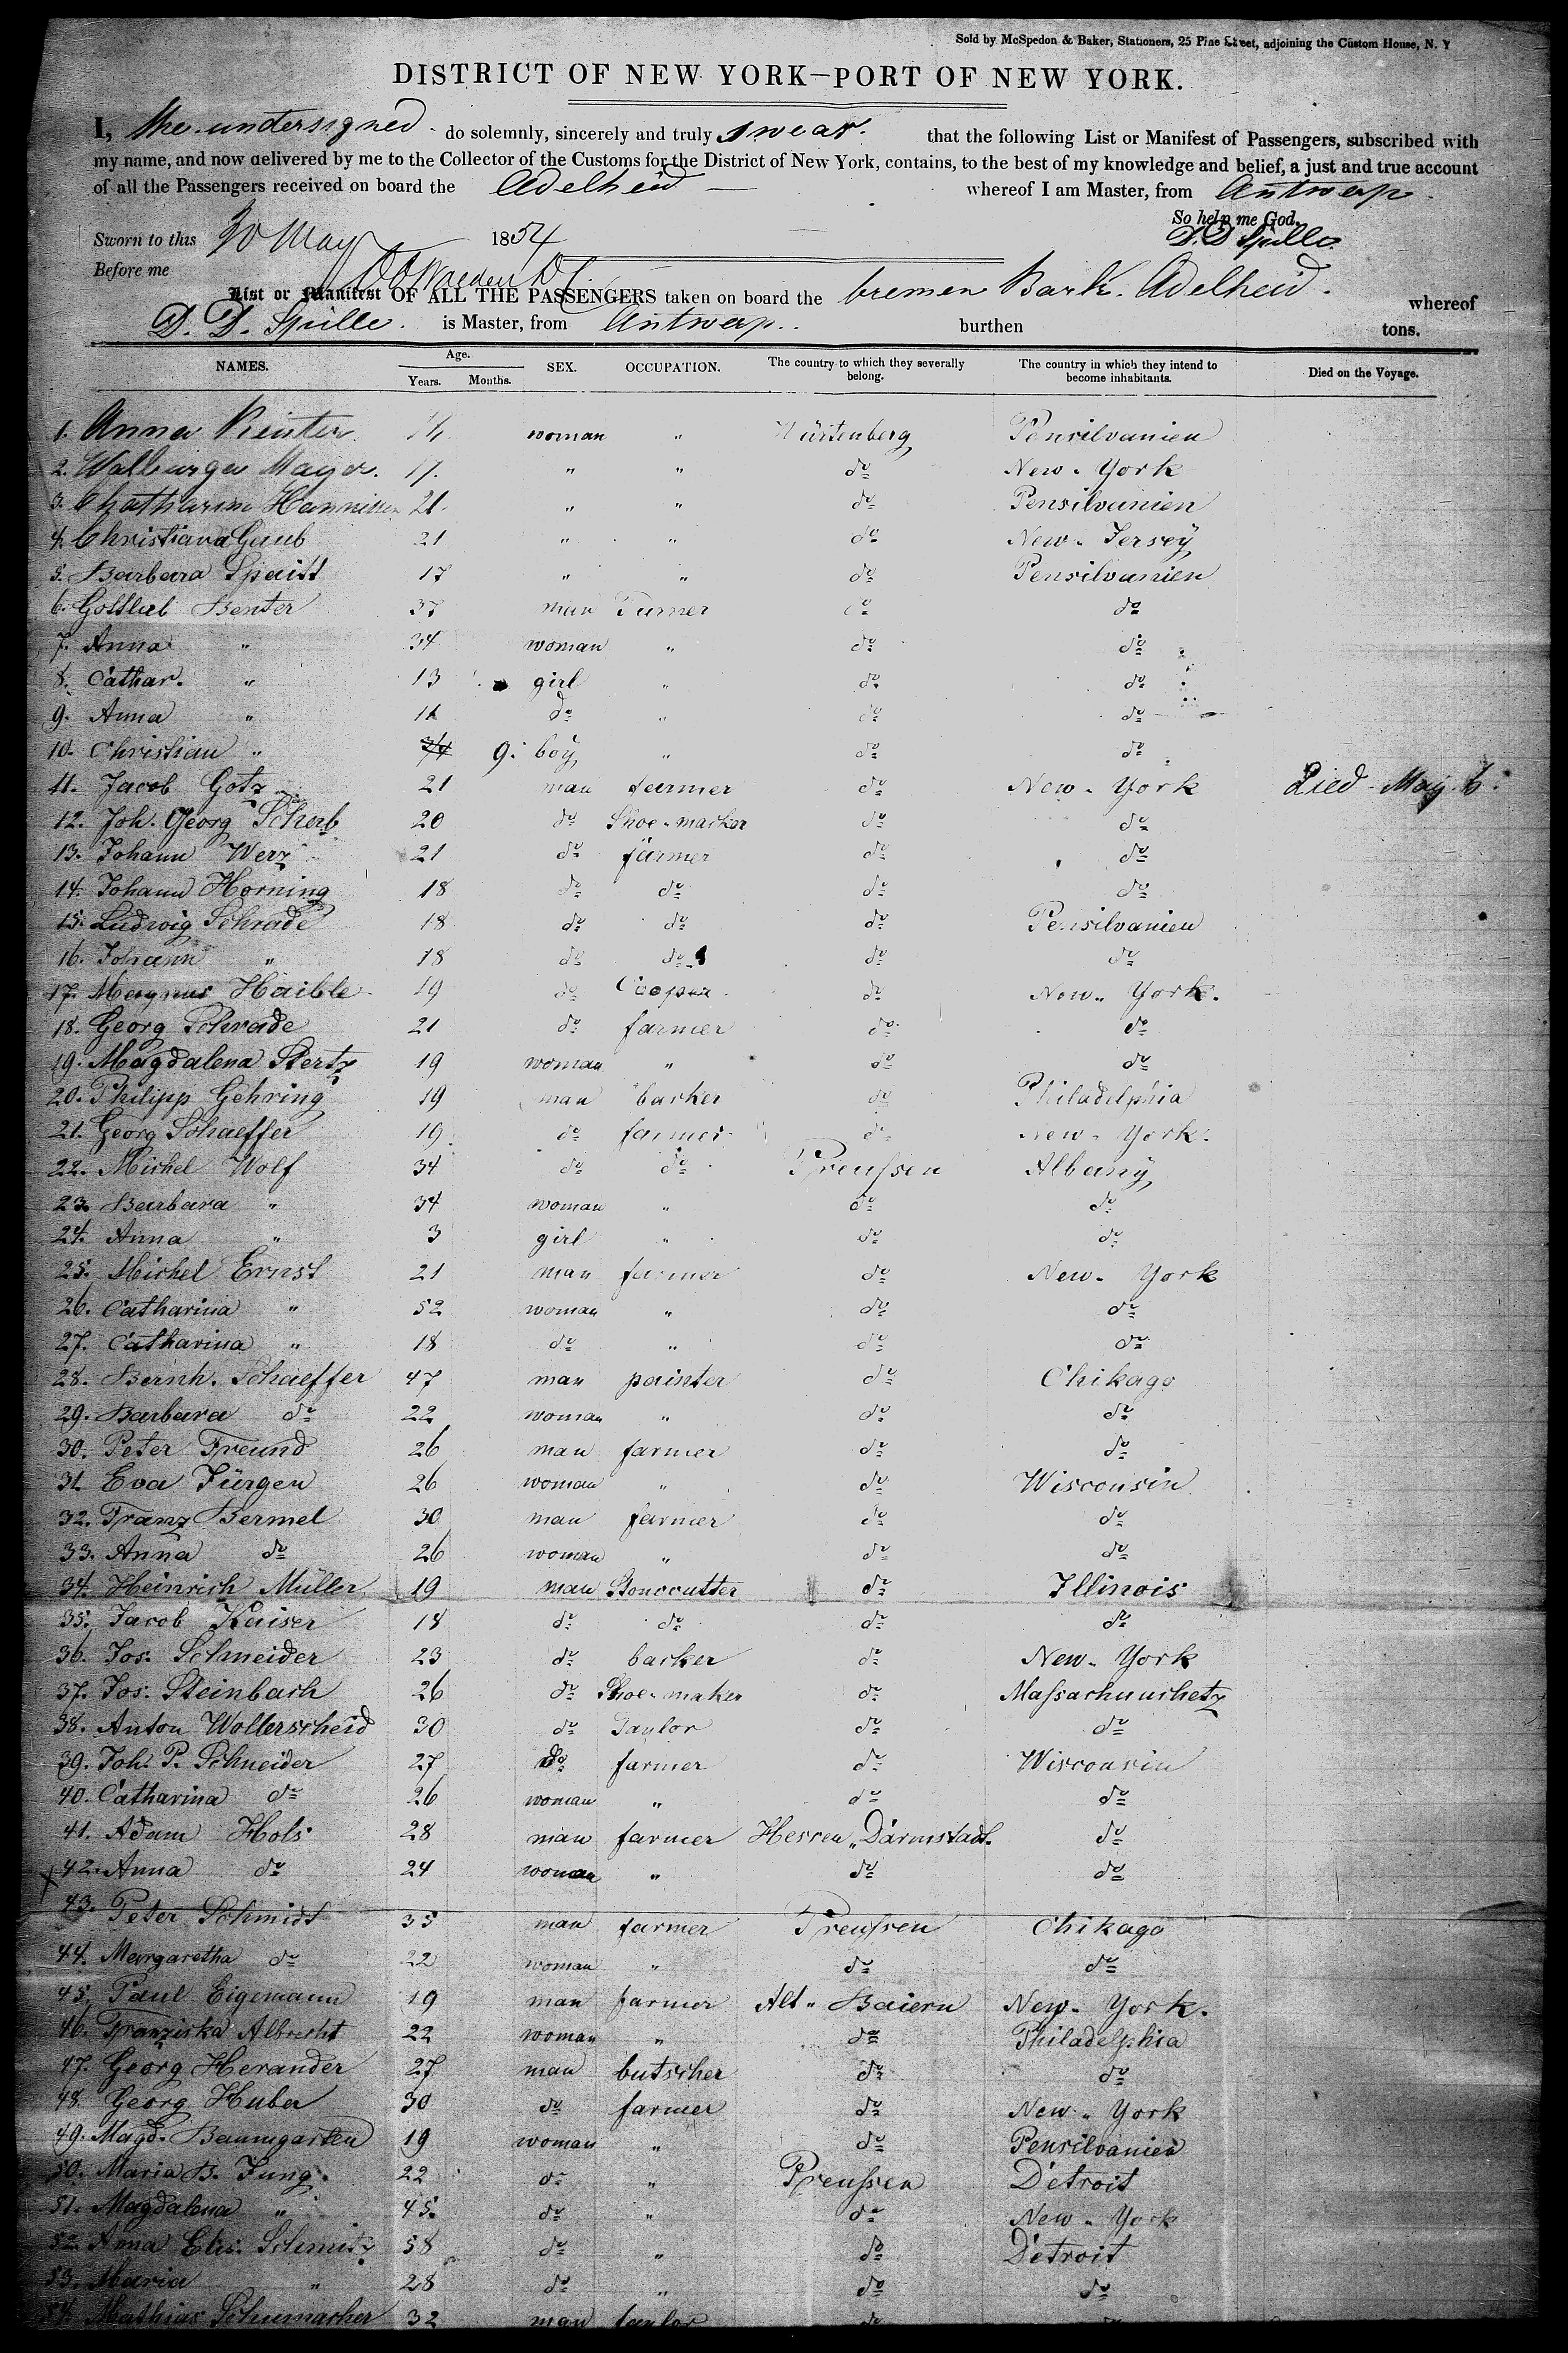 Sold by McSpedon & Baker, Stationers, 25 Pine Street, adjoining the Custom House, N. Y
DISTRICT OF NEW YORK—PORT OF NEW YORK.
I, the undersigned do solemnly, sincerely and truly swear that the following List or Manifest of Passengers, subscribed with
my name, and now delivered by me to the Collector of the Customs for the District of New York, contains, to the best of my knowledge and belief, a just and true account
of all the Passengers received on board the Adelheid — whereof I am Master, from Antwerp.
So help me God.
Sworn to this 30 May 1854 D. D. Spille
Before me
List or Manifest OF ALL THE PASSENGERS taken on board the bremen Bark. Adelheid. whereof
D. D. Spille. is Master, from Antwerp.. burthen tons.
NAMES. Age. Years. Months. SEX. OCCUPATION. The country to which they severally belong. The country in which they intend to become inhabitants. Died on the Voyage.
1. Anna woman " Würtenberg Pensilvanien
2. Walburga Mayer. 17. " " do New-York
3. Chatharina 21. " " do Pensilvanien
4. Christiana Gaub 21 " " do New-Jersey
5. Barbara Spaitt 17 " " do Pensilvanien
6. Gottlieb Benter 37 man Turner do do
7. Anna " 34 woman " do do
8. Cathar. " 13 girl " do do
9. Anna " 11 do " do do
10. Christian " 9. boy " do do
11. Jacob Gotz 21 man farmer do New-York Died May 6.
12. Joh. Georg Scherb 20 do Shoe-macker do do
13. Johann Werz 21 do farmer do do
14. Johann Horning 18 do do do do
15. Ludwig Schrade 18 do do do Pensilvanien
16. Johann " 18 do do do do
17. Magnus Haible 19 do Cooper do New-York.
18. Georg Schrade 21 do farmer do do
19. Magdalena Stertz 19 woman " do do
20. Philipp Gehring 19 man backer do Philadelphia
21. Georg Schaeffer 19 do farmer do New-York.
22. Michel Wolf 34 do do Preussen Albany
23. Barbara " 34 woman " do do
24. Anna " 3 girl " do do
25. Michel Ernst 21 man farmer do New-York
26. Catharina " 52 woman " do do
27. Catharina " 18 do " do do
28. Bernh. Schaeffer 47 man painter do Chikago
29. Barbara do 22 woman " do do
30. Peter Freund 26 man farmer do do
31. Eva Jürgen 26 woman " do Wisconsin
32. Franz Bermel 30 man farmer do do
33. Anna do 26 woman " do do
34. Heinrich Müller 19 man Stonecutter do Illinois
35. Jacob Kaiser 18 do do do do
36. Jos. Schneider 23 do backer do New-York
37. Jos. Steinbach 26 do Shoe-maker do Massachuschetz
38. Anton Wollerscheid 30 do Taylor do do
39. Joh. P. Schneider 27 do farmer do Wisconsin
40. Catharina do 26 woman " do do
41. Adam Hols 28 man farmer Hessen-Darmstadt do
42. Anna do 24 woman " do do
43. Peter Schmidt 35 man farmer Preussen Chikago
44. Margaretha do 22 woman " do do
45. Paul Eigemann 19 man farmer Alt-Baiern New-York.
46. Franziska Albrecht 22 woman " do Philadelphia
47. Georg Herander 27 man butscher do do
48. Georg Huber 30 do farmer do New-York
49. Magd. Baumgarten 19 woman " do Pensilvanien
50. Maria B. Jung. 22 do " Preussen Detroit
51. Magdalena " 45. do " do New-York
52. Anna Elis. Schmitz 58 do " do Detroit
53. Maria " 28 do " do do
54. Mathias Schumacher 32 man taylor do